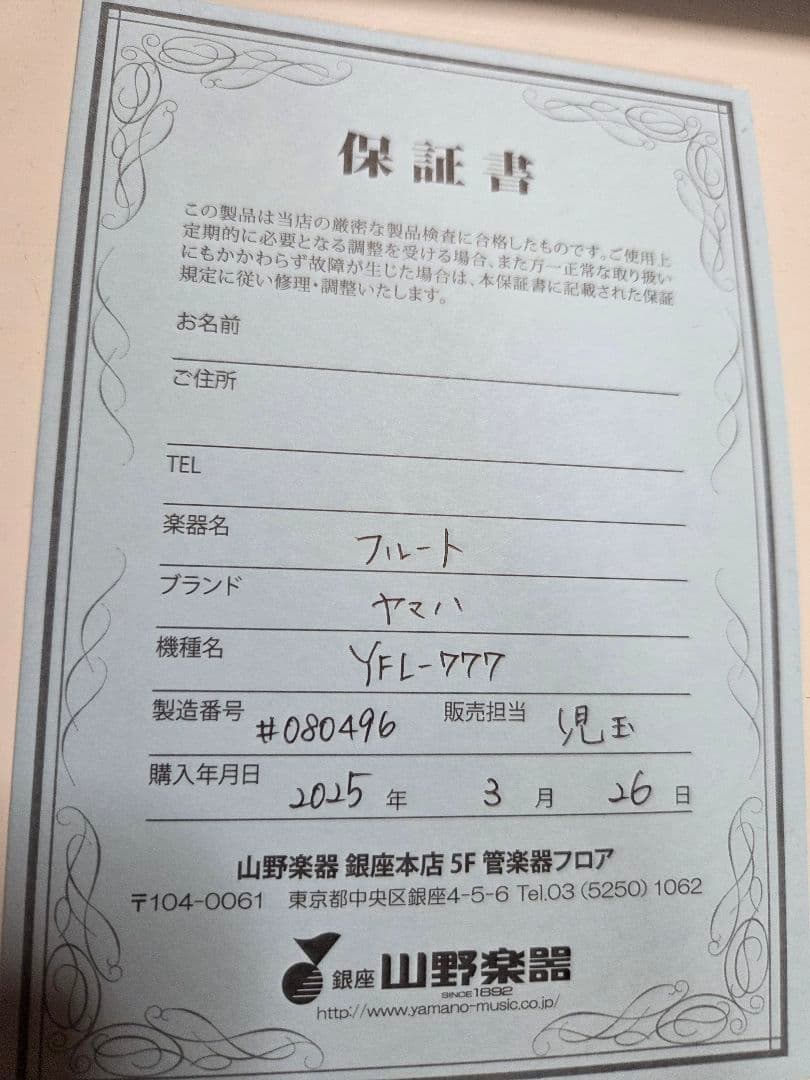 保証書
この製品は当店の厳密な製品検査に合格したものです。ご使用上
定期的に必要となる調整を受ける場合、また万一正常な取り扱い
にもかかわらず故障が生じた場合は、本保証書に記載された保証
規定に従い修理・調整いたします。
お名前
ご住所
TEL
楽器名 フルート
ブランド ヤマハ
機種名 YFL-777
製造番号 #080496 販売担当 児玉
購入年月日 2025 年 3 月 26 日
山野楽器 銀座本店 5F 管楽器フロア
〒104-0061 東京都中央区銀座4-5-6 Tel.03(5250)1062
銀座 山野楽器
SINCE 1892
http://www.yamano-music.co.jp/